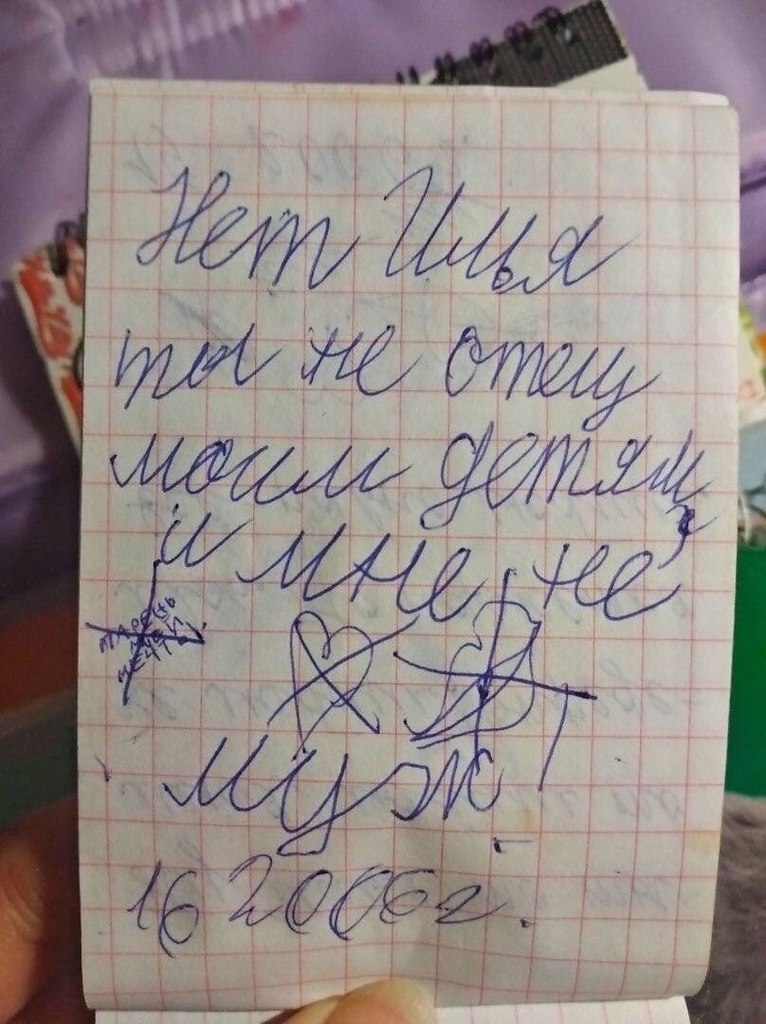 Нет Илья
ты не отец
моим детям,
и мне не
парень
мечты
муж!
16 2006г.